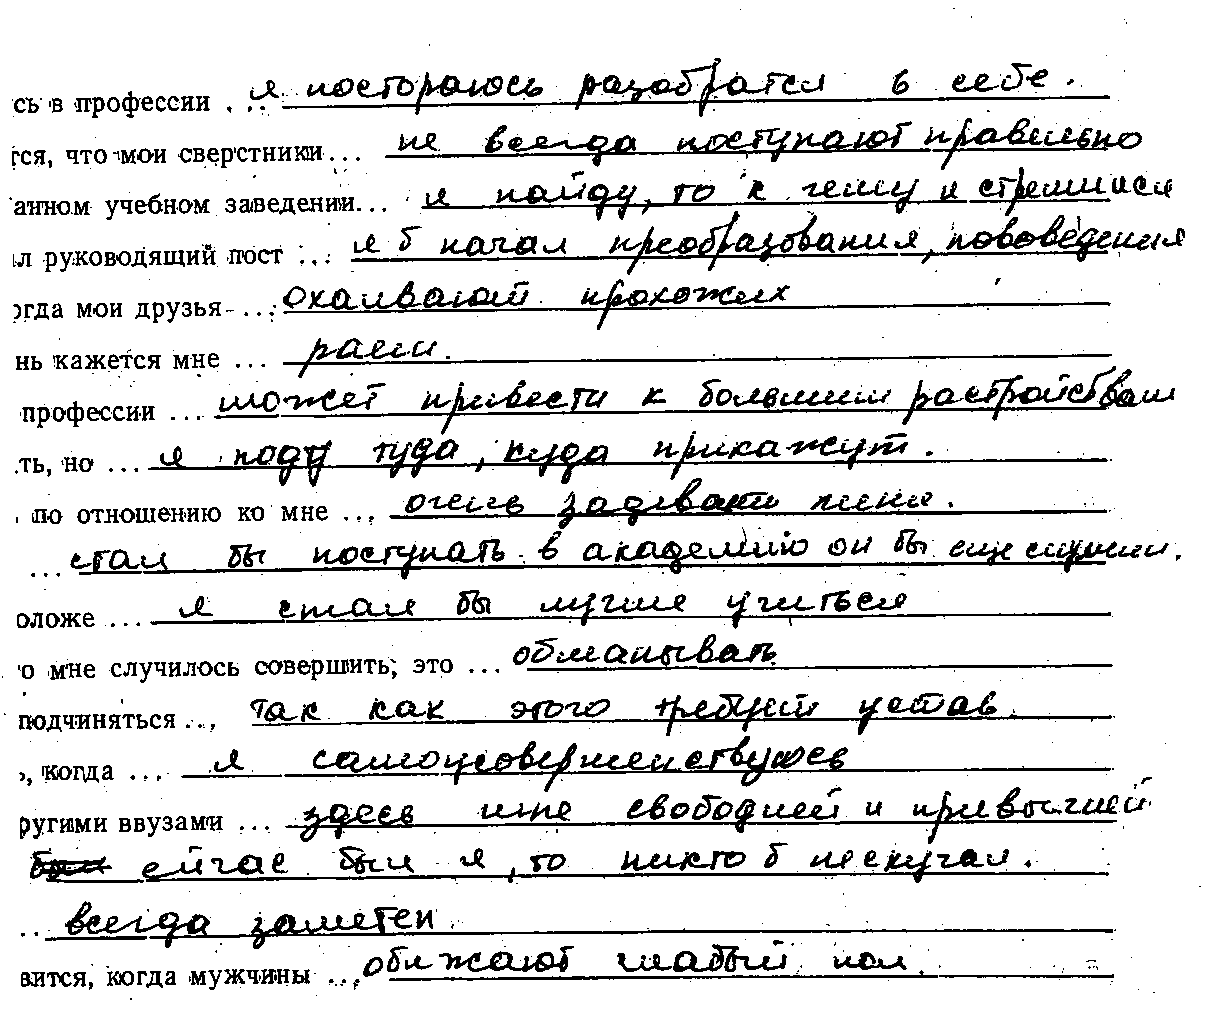 сь в профессии ... я постораюсь разобратся в себе.
тся, что мои сверстники ... не всегда поступают правильно
анном учебном заведении ... я найду, то к чему я стремился
ил руководящий пост ... я б начал преобразования, нововедения
огда мои друзья - ... охаивают прохожих
нь кажется мне ... раем.
профессии ... может привести к большим растройствам
ть, но ... я поду туда, куда прикажут.
по отношению ко мне ... очень задевают меня.
... стал бы поступать в академию он бы еще
оложе ... я стал бы лучше учиться
о мне случилось совершить, это ... обманывать
подчиняться ... так как этого требует устав
о, когда ... я самоусовершенствуюсь
ругими ввузами ... здесь мне свободней и привычней
ейчас был я, то никто б нескучал.
... всегда заметен
вится, когда мужчины ... обижают слабый пол.